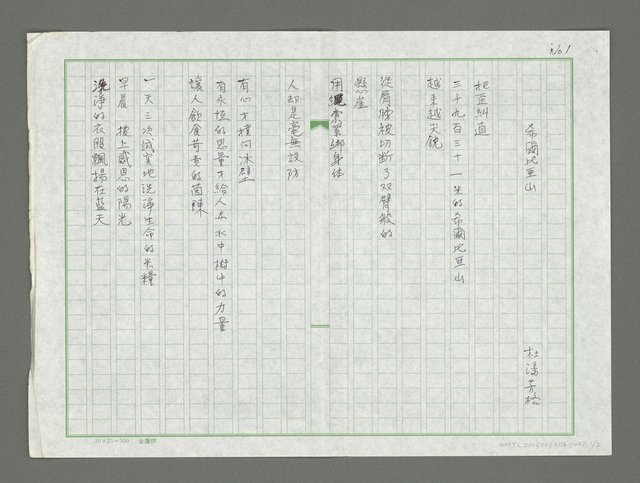 No 1
希爾比亞山
杜潘芳格
把歪糾直
三十九百三十一米的希爾比亞山
越來越尖銳
從肩膀被切斷了双臂般的
懸崖
用繩索緊綁身体
人却是毫無設防
有心才撲向冰壁
有永恒的思量才給人忍水中樹中的力量
讓人飲食苛責的茵陳
一天三次誠實地洗海生命的米糧
早晨 披上感恩的陽光
洗淨的衣服飄揚在藍天
20×25=500 金鷹牌